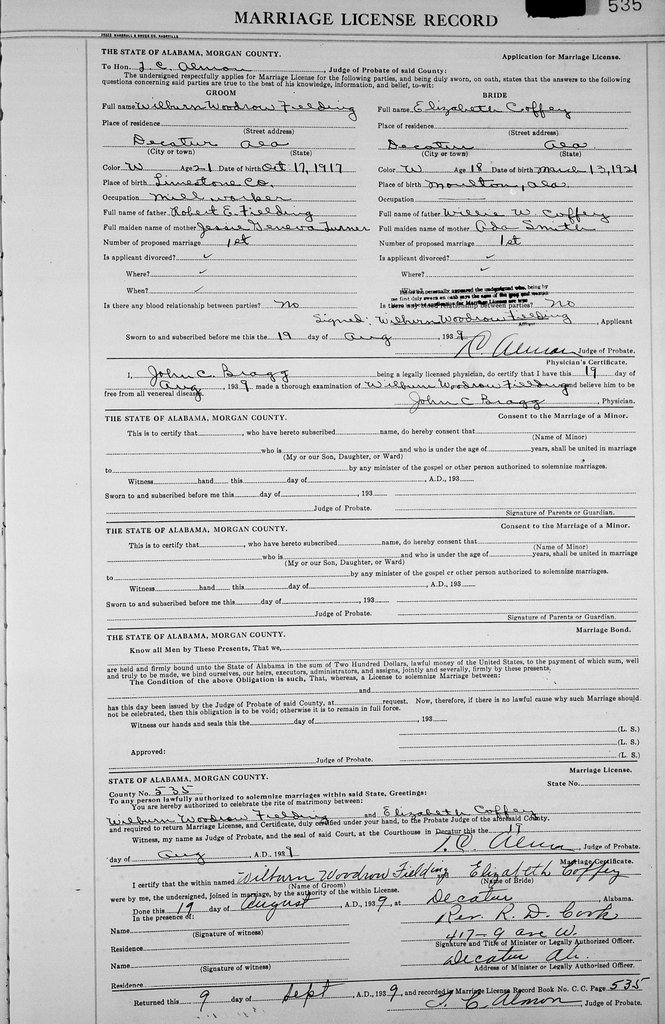 535
MARRIAGE LICENSE RECORD
THE STATE OF ALABAMA, MORGAN COUNTY. Application for Marriage License.
To Hon. L. C. Almon, Judge of Probate of said County:
The undersigned respectfully applies for Marriage License for the following parties, and being duly sworn, on oath, states that the answers to the following
questions concerning said parties are true to the best of his knowledge, information, and belief, to-wit:
GROOM BRIDE
Full name Wilburn Woodrow Fielding Full name Elizabeth Coffey
Place of residence Place of residence
(Street address) (Street address)
Decatur Ala Decatur Ala
(City or town) (State) (City or town) (State)
Color W Age 21 Date of birth Oct 17, 1917 Color W Age 18 Date of birth March 13, 1921
Place of birth Limestone Co. Place of birth Moulton, Ala
Occupation Mill worker Occupation
Full name of father Robert E. Fielding Full name of father Willie W. Coffey
Full maiden name of mother Jessie Geneva Turner Full maiden name of mother Ada Smith
Number of proposed marriage 1st Number of proposed marriage 1st
Is applicant divorced? ✓ Is applicant divorced? ✓
Where? ✓ Where? ✓
When? ✓
Is there any blood relationship between parties? No Is there any blood relationship between parties? No
Signed: Wilburn Woodrow Fielding, Applicant
Sworn to and subscribed before me this the 19 day of Aug, 1939 L C Almon Judge of Probate.
Physician's Certificate.
I, John C. Bragg being a legally licensed physician, do certify that I have this 19 day of
Aug, 1939 made a thorough examination of Wilburn Woodrow Fielding and believe him to be
free from all venereal disease. John C Bragg, Physician.
THE STATE OF ALABAMA, MORGAN COUNTY. Consent to the Marriage of a Minor.
This is to certify that, who have hereto subscribed name, do hereby consent that
(Name of Minor)
who is and who is under the age of years, shall be united in marriage
(My or our Son, Daughter, or Ward)
to by any minister of the gospel or other person authorized to solemnize marriages.
Witness hand this day of, A.D., 193
Sworn to and subscribed before me this day of, 193
Judge of Probate. Signature of Parents or Guardian.
THE STATE OF ALABAMA, MORGAN COUNTY. Consent to the Marriage of a Minor.
This is to certify that, who have hereto subscribed name, do hereby consent that
(Name of Minor)
who is and who is under the age of years, shall be united in marriage
(My or our Son, Daughter, or Ward)
to by any minister of the gospel or other person authorized to solemnize marriages.
Witness hand this day of, A.D., 193
Sworn to and subscribed before me this day of, 193
Judge of Probate. Signature of Parents or Guardian.
THE STATE OF ALABAMA, MORGAN COUNTY. Marriage Bond.
Know all Men by These Presents, That we,
are held and firmly bound unto the State of Alabama in the sum of Two Hundred Dollars, lawful money of the United States, to the payment of which sum, well
and truly to be made, we bind ourselves, our heirs, executors, administrators, and assigns, jointly and severally, firmly by these presents.
The Condition of the above Obligation is such, That, whereas, a License to solemnize Marriage between:
and
has this day been issued by the Judge of Probate of said County, at request. Now, therefore, if there is no lawful cause why such Marriage should
not be celebrated, then this obligation is to be void; otherwise it is to remain in full force.
Witness our hands and seals this the day of, 193
(L. S.)
(L. S.)
Approved:
Judge of Probate. (L. S.)
THE STATE OF ALABAMA, MORGAN COUNTY. Marriage License.
County No. 535 State No.
To any person lawfully authorized to solemnize marriages within said State, Greetings:
You are hereby authorized to celebrate the rite of matrimony between:
Wilburn Woodrow Fielding and Elizabeth Coffey
and required to return Marriage License, and Certificate, duly certified under your hand, to the Probate Judge of the aforesaid County.
Witness, my name as Judge of Probate, and the seal of said Court, at the Courthouse in Decatur this the 19
day of Aug A.D., 1939 L. C. Almon, Judge of Probate.
Marriage Certificate.
I certify that the within named Wilburn Woodrow Fielding Elizabeth Coffey
(Name of Groom) (Name of Bride)
were by me, the undersigned, joined in marriage, by the authority of the within License.
Done this 19 day of August, A.D., 1939, at Decatur, Alabama.
In the presence of: Rev. R. D. Cook
Name 417-9 ave W.
(Signature of witness) Signature and Title of Minister or Legally Authorized Officer.
Residence Decatur Al.
Name Address of Minister or Legally Authorized Officer.
(Signature of witness)
Residence
Returned this 9 day of Sept, A.D., 1939, and recorded in Marriage License Record Book No. C. C. Page 535
L. C. Almon, Judge of Probate.